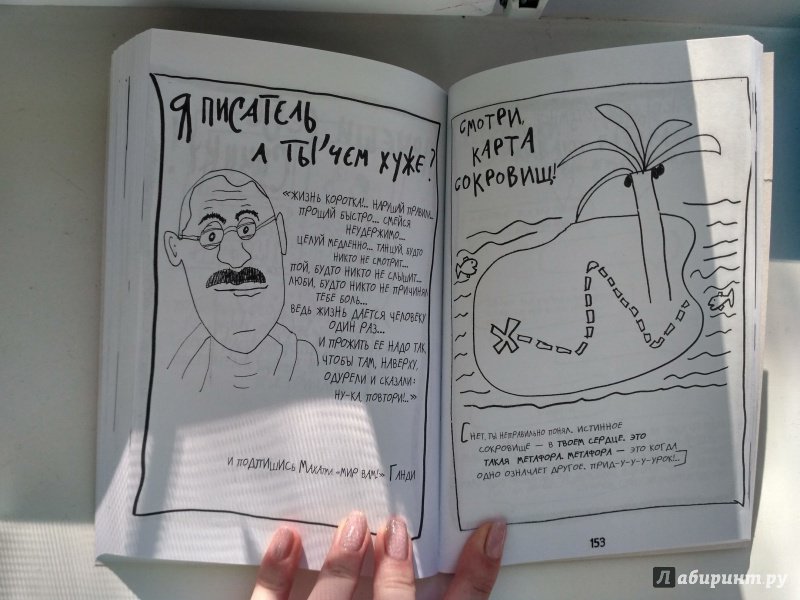 Я ПИСАТЕЛЬ
А ТЫ ЧЕМ ХУЖЕ?
«ЖИЗНЬ КОРОТКА!... НАРУШАЙ ПРАВИЛА...
ПРОЩАЙ БЫСТРО... СМЕЙСЯ
НЕУДЕРЖИМО...
ЦЕЛУЙ МЕДЛЕННО... ТАНЦУЙ, БУДТО
НИКТО НЕ СМОТРИТ...
ПОЙ, БУДТО НИКТО НЕ СЛЫШИТ...
ЛЮБИ, БУДТО НИКТО НЕ ПРИЧИНЯЛ
ТЕБЕ БОЛЬ...
ВЕДЬ ЖИЗНЬ ДАЕТСЯ ЧЕЛОВЕКУ
ОДИН РАЗ...
И ПРОЖИТЬ ЕЕ НАДО ТАК,
ЧТОБЫ ТАМ, НАВЕРХУ,
ОДУРЕЛИ И СКАЗАЛИ:
НУ-КА, ПОВТОРИ!..»
И ПОДПИШИСЬ МАХАТМА «МИР ВАМ!» ГАНДИ
СМОТРИ,
КАРТА
СОКРОВИЩ!
[НЕТ, ТЫ НЕПРАВИЛЬНО ПОНЯЛ. ИСТИННОЕ
СОКРОВИЩЕ — В ТВОЕМ СЕРДЦЕ. ЭТО
ТАКАЯ МЕТАФОРА. МЕТАФОРА — ЭТО КОГДА
ОДНО ОЗНАЧАЕТ ДРУГОЕ. ПРИД-У-У-У-УРОК!..]
153
Лабиринт.ру